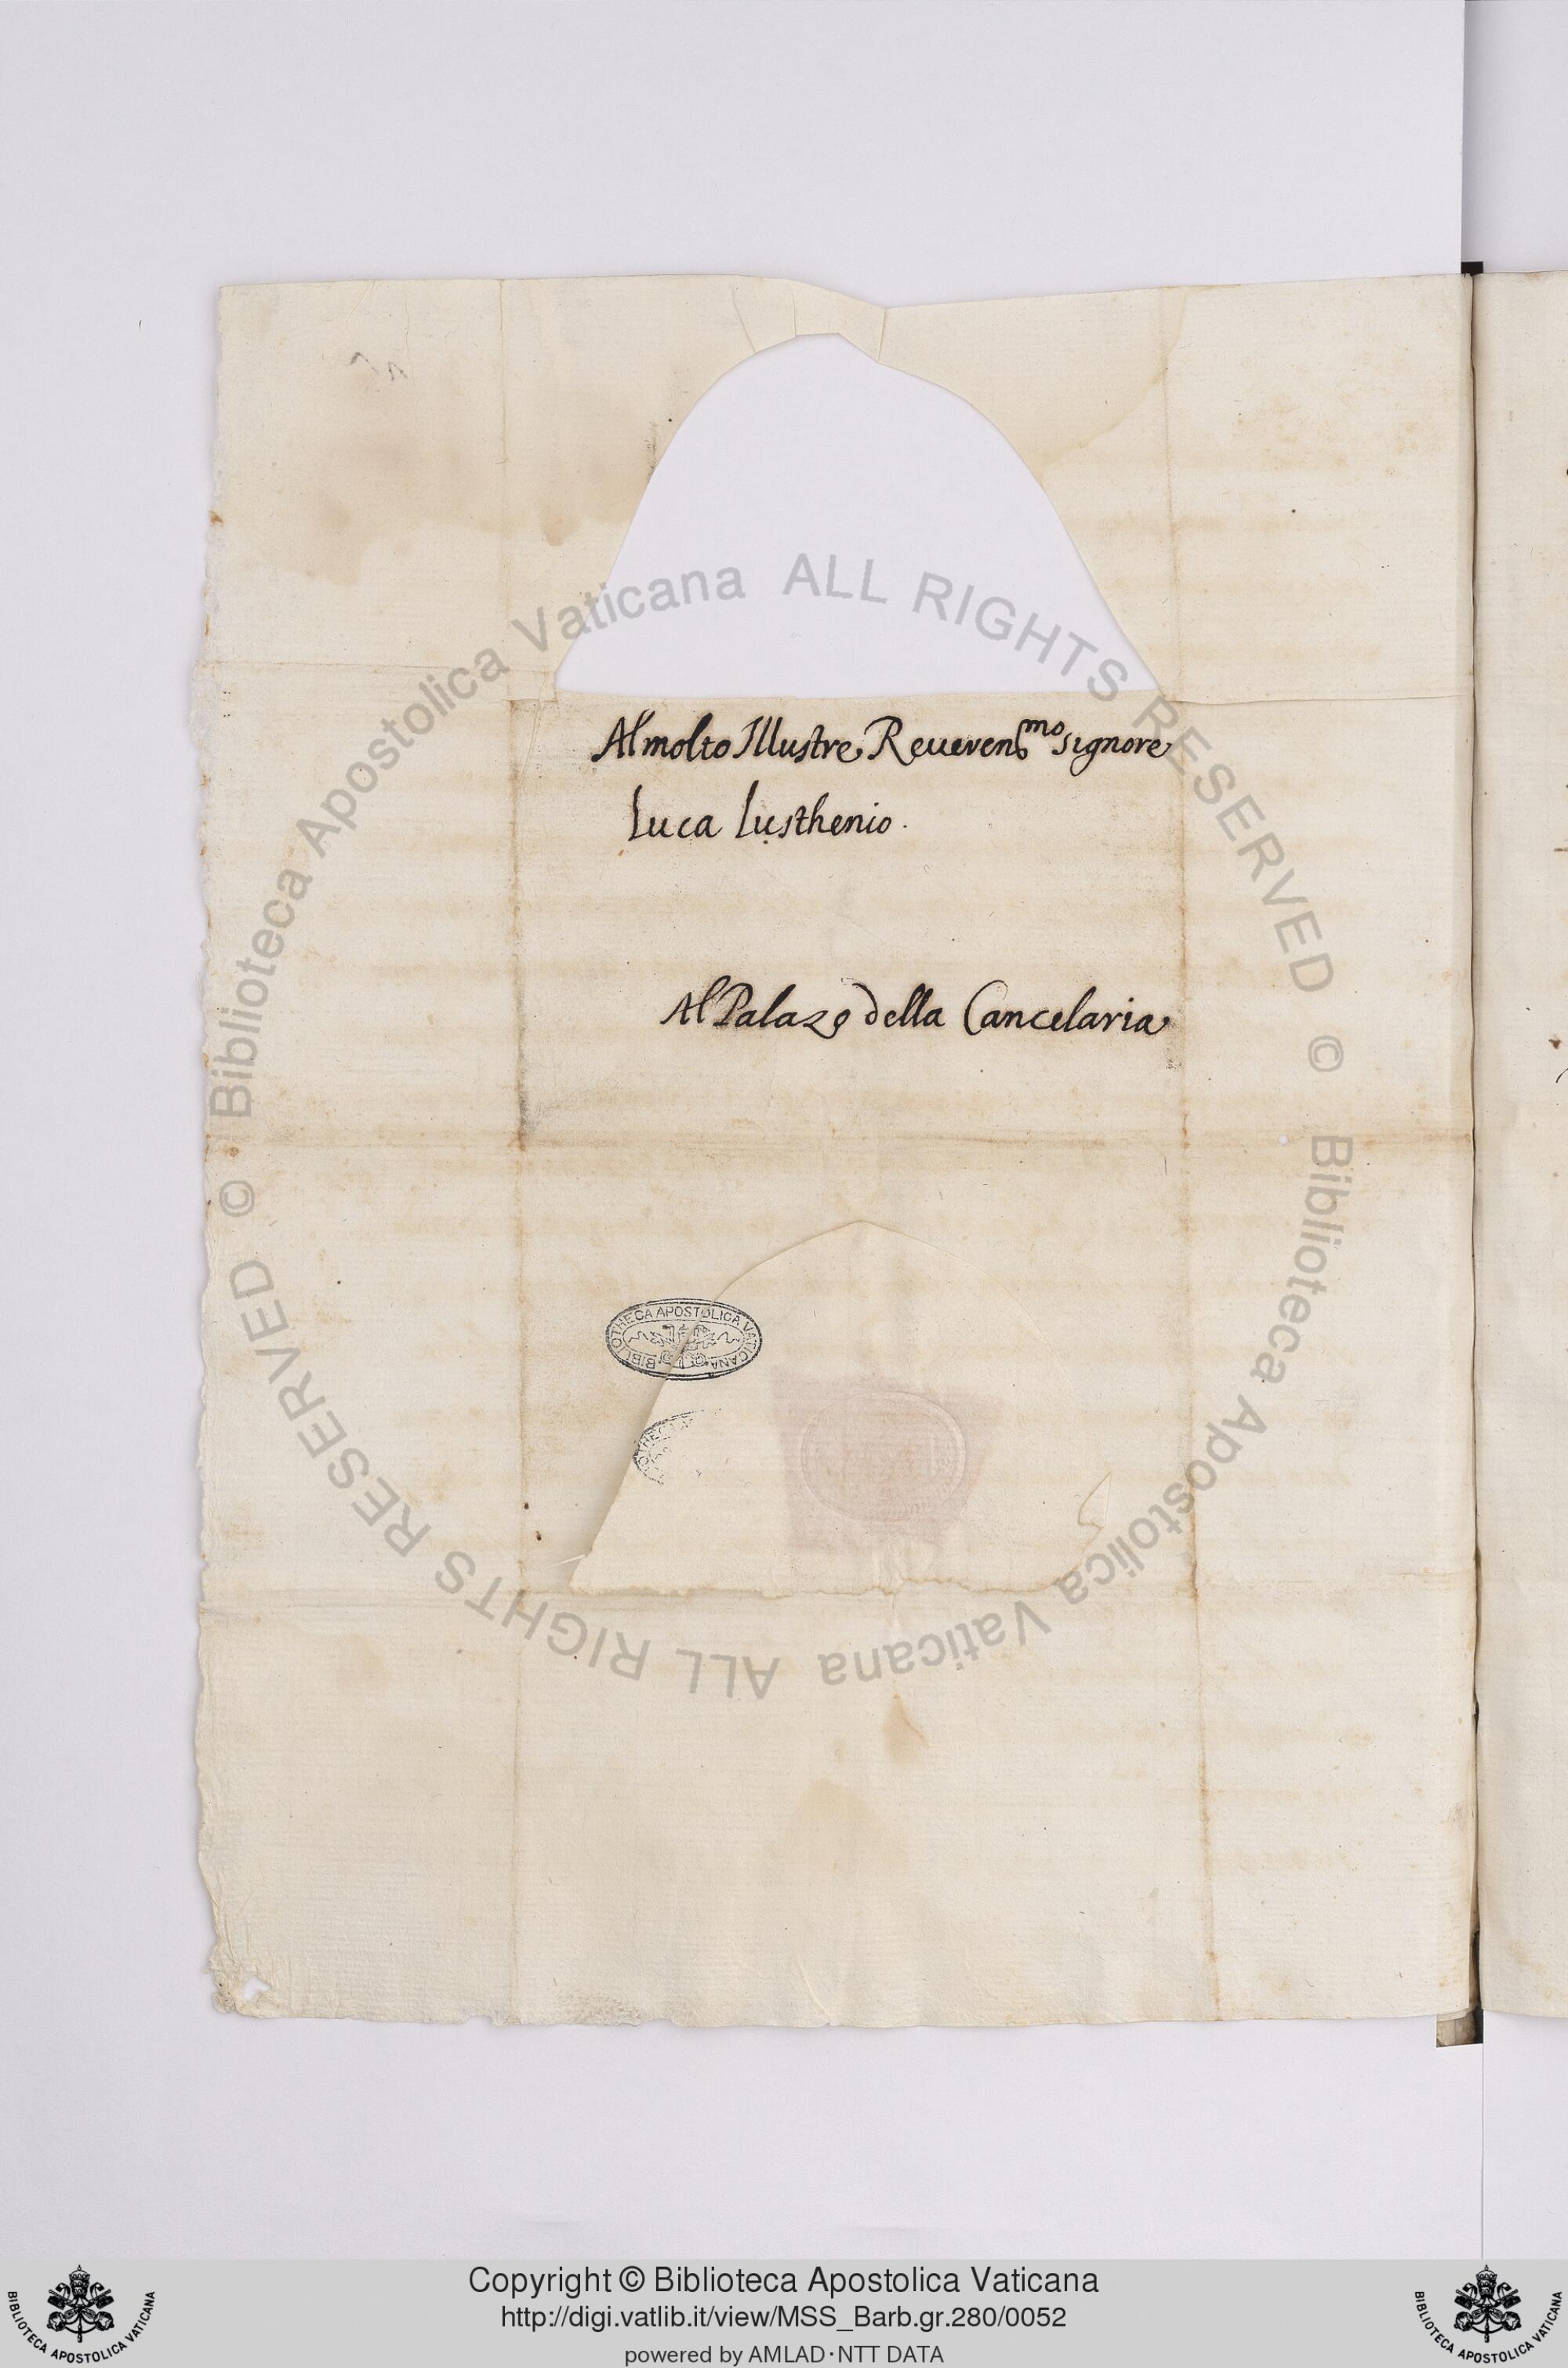 Al molto Illustre Reueren^mo signore
Luca Lusthenio.
Al Palazo della Cancelaria
BIBLIOTHECA APOSTOLICA VATICANA
© Biblioteca Apostolica Vaticana ALL RIGHTS RESERVED
© Biblioteca Apostolica Vaticana ALL RIGHTS RESERVED
Copyright © Biblioteca Apostolica Vaticana
http://digi.vatlib.it/view/MSS_Barb.gr.280/0052
powered by AMLAD·NTT DATA
BIBLIOTECA APOSTOLICA VATICANA
BIBLIOTECA APOSTOLICA VATICANA